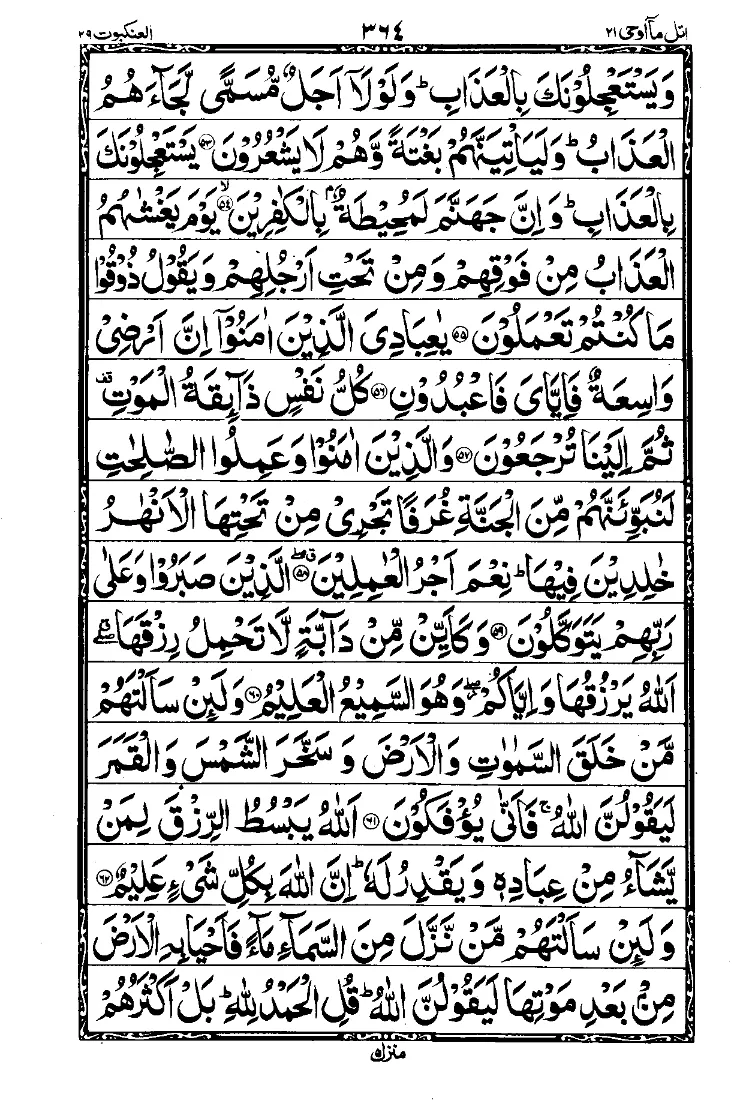 اتل مآ اوحی ۲۱ ۳۶۴ العنکبوت ۲۹
وَيَسْتَعْجِلُوْنَكَ بِالْعَذَابِ ؕ وَلَوْلَاۤ اَجَلٌ مُّسَمًّى لَّجَآءَهُمُ
الْعَذَابُ ؕ وَلَيَاْتِيَنَّهُمْ بَغْتَةً وَّهُمْ لَا يَشْعُرُوْنَ ﴿۵۳﴾ يَسْتَعْجِلُوْنَكَ
بِالْعَذَابِ ؕ وَاِنَّ جَهَنَّمَ لَمُحِيْطَةٌۢ بِالْكٰفِرِيْنَ ۙ﴿۵۴﴾ يَوْمَ يَغْشٰىهُمُ
الْعَذَابُ مِنْ فَوْقِهِمْ وَمِنْ تَحْتِ اَرْجُلِهِمْ وَيَقُوْلُ ذُوْقُوْا
مَا كُنْتُمْ تَعْمَلُوْنَ ﴿۵۵﴾ يٰعِبَادِىَ الَّذِيْنَ اٰمَنُوْۤا اِنَّ اَرْضِىْ
وَاسِعَةٌ فَاِيَّاىَ فَاعْبُدُوْنِ ﴿۵۶﴾ كُلُّ نَفْسٍ ذَآئِقَةُ الْمَوْتِ قف
ثُمَّ اِلَيْنَا تُرْجَعُوْنَ ﴿۵۷﴾ وَالَّذِيْنَ اٰمَنُوْا وَعَمِلُوا الصّٰلِحٰتِ
لَنُبَوِّئَنَّهُمْ مِّنَ الْجَنَّةِ غُرَفًا تَجْرِىْ مِنْ تَحْتِهَا الْاَنْهٰرُ
خٰلِدِيْنَ فِيْهَا ؕ نِعْمَ اَجْرُ الْعٰمِلِيْنَ ﴿۵۸﴾ الَّذِيْنَ صَبَرُوْا وَعَلٰى
رَبِّهِمْ يَتَوَكَّلُوْنَ ﴿۵۹﴾ وَكَاَيِّنْ مِّنْ دَآبَّةٍ لَّا تَحْمِلُ رِزْقَهَا
اَللّٰهُ يَرْزُقُهَا وَاِيَّاكُمْ وَهُوَ السَّمِيْعُ الْعَلِيْمُ ﴿۶۰﴾ وَلَئِنْ سَاَلْتَهُمْ
مَّنْ خَلَقَ السَّمٰوٰتِ وَالْاَرْضَ وَسَخَّرَ الشَّمْسَ وَالْقَمَرَ
لَيَقُوْلُنَّ اللّٰهُ ۚ فَاَنّٰى يُؤْفَكُوْنَ ﴿۶۱﴾ اَللّٰهُ يَبْسُطُ الرِّزْقَ لِمَنْ
يَّشَآءُ مِنْ عِبَادِهٖ وَيَقْدِرُ لَهٗ ؕ اِنَّ اللّٰهَ بِكُلِّ شَىْءٍ عَلِيْمٌ ﴿۶۲﴾
وَلَئِنْ سَاَلْتَهُمْ مَّنْ نَّزَّلَ مِنَ السَّمَآءِ مَآءً فَاَحْيَا بِهِ الْاَرْضَ
مِنْۢ بَعْدِ مَوْتِهَا لَيَقُوْلُنَّ اللّٰهُ ؕ قُلِ الْحَمْدُ لِلّٰهِ ؕ بَلْ اَكْثَرُهُمْ
منزل ۵